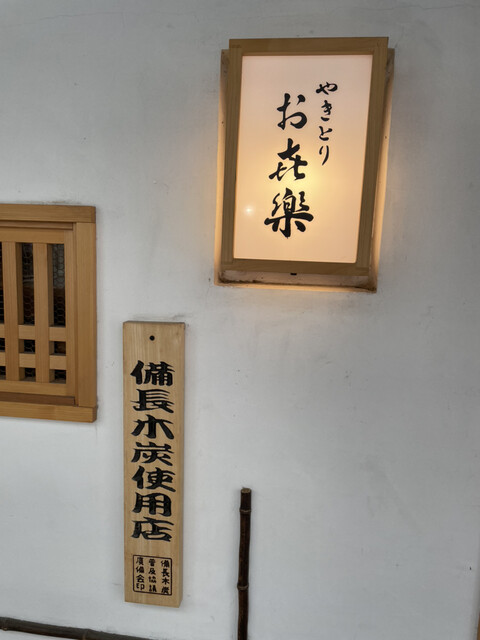 やきとり
お㐂樂
備長木炭使用店
備長木炭
普及協議